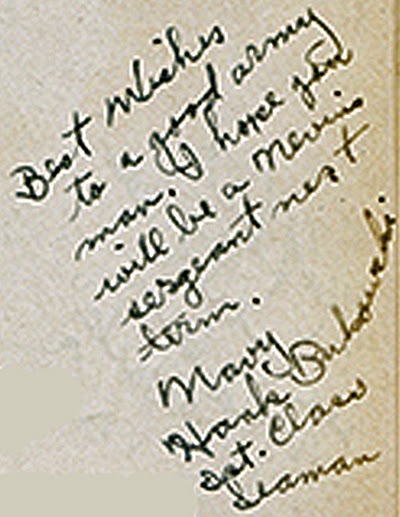 Best Wishes
to a good army
man. I hope you
will be a
sergeant next
term.
Navy
Hank Bukowski
1st. Class
Seaman